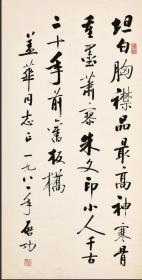 坦白胸襟品最高神寒骨
重墨萧寥朱文印小人千古
二十年前旧板桥
益华同志正一九八二年启功